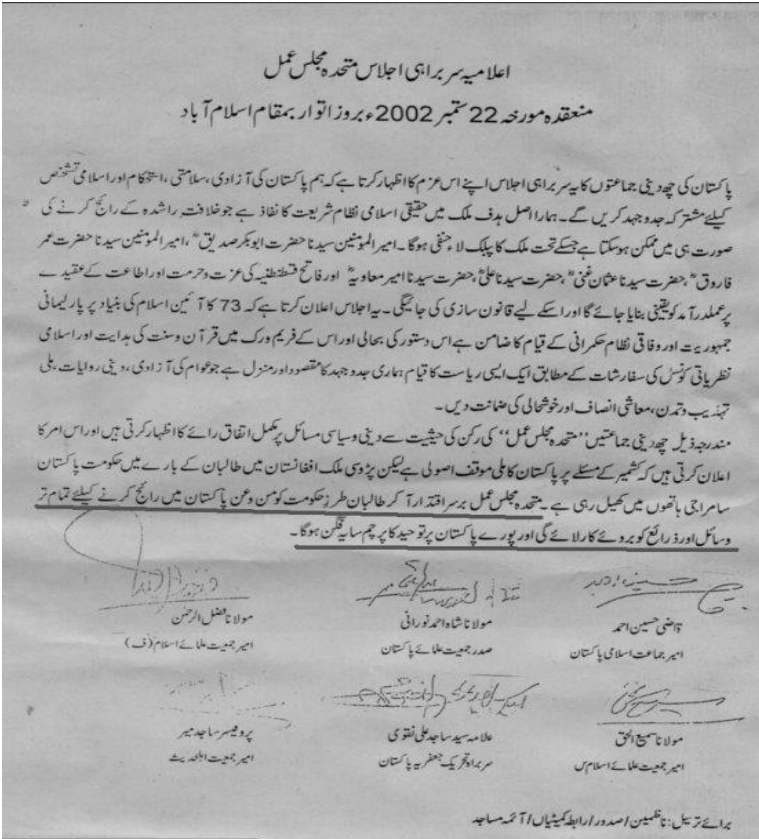 اعلامیہ سربراہی اجلاس متحدہ مجلس عمل
منعقدہ مورخہ 22 ستمبر 2002ء بروز اتوار بمقام اسلام آباد
پاکستان کی چھ دینی جماعتوں کا یہ سربراہی اجلاس اپنے اس عزم کا اظہار کرتا ہے کہ ہم پاکستان کی آزادی، سلامتی، استحکام اور اسلامی تشخص
کیلئے مشترکہ جدوجہد کریں گے۔ ہمارا اصل ہدف ملک میں حقیقی اسلامی نظام شریعت کا نفاذ ہے جو خلافت راشدہ کے رائج کرنے کی
صورت ہی میں ممکن ہو سکتا ہے جسکے تحت ملک کا پبلک لاء حنفی ہوگا۔ امیر المومنین سیدنا حضرت ابوبکر صدیقؓ، امیر المومنین سیدنا حضرت عمر
فاروقؓ، حضرت سیدنا عثمان غنیؓ، حضرت سیدنا علیؓ، حضرت سیدنا امیر معاویہؓ اور فاتح قسطنطنیہ کی عزت و حرمت اور اطاعت کے عقیدے
پر عملدرآمد کو یقینی بنایا جائے گا اور اسکے لیے قانون سازی کی جائیگی۔ یہ اجلاس اعلان کرتا ہے کہ 73 کا آئین اسلام کی بنیاد پر پارلیمانی
جمہوریت اور وفاقی نظام حکمرانی کے قیام کا ضامن ہے اس دستور کی بحالی اور اس کے فریم ورک میں قرآن و سنت کی ہدایت اور اسلامی
نظریاتی کونسل کی سفارشات کے مطابق ایک ایسی ریاست کا قیام ہماری جدوجہد کا مقصود اور منزل ہے جو عوام کی آزادی، دینی روایات، ملی
تہذیب و تمدن، معاشی انصاف اور خوشحالی کی ضمانت دیں۔
مندرجہ ذیل چھ دینی جماعتیں "متحدہ مجلس عمل" کی رکن کی حیثیت سے دینی و سیاسی مسائل پر مکمل اتفاق رائے کا اظہار کرتی ہیں اور اس امر کا
اعلان کرتی ہیں کہ کشمیر کے مسئلے پر پاکستان کا ملی موقف اصولی ہے لیکن پڑوسی ملک افغانستان میں طالبان کے بارے میں حکومت پاکستان
سامراجی ہاتھوں میں کھیل رہی ہے۔ متحدہ مجلس عمل برسر اقتدار آ کر طالبان طرز حکومت کو من و عن پاکستان میں رائج کرنے کیلئے تمام تر
وسائل اور ذرائع کو بروئے کار لائے گی اور پورے پاکستان پر توحید کا پرچم سایہ فگن ہوگا۔
قاضی حسین احمد
امیر جماعت اسلامی پاکستان
مولانا شاہ احمد نورانی
صدر جمعیت علمائے پاکستان
مولانا فضل الرحمٰن
امیر جمعیت علمائے اسلام (ف)
مولانا سمیع الحق
امیر جمعیت علمائے اسلام س
علامہ سید ساجد علی نقوی
سربراہ تحریک جعفریہ پاکستان
پروفیسر ساجد میر
امیر جمعیت اہلحدیث
برائے ترسیل: ناظمین / صدور / رابطہ کمیٹیاں / آئمہ مساجد